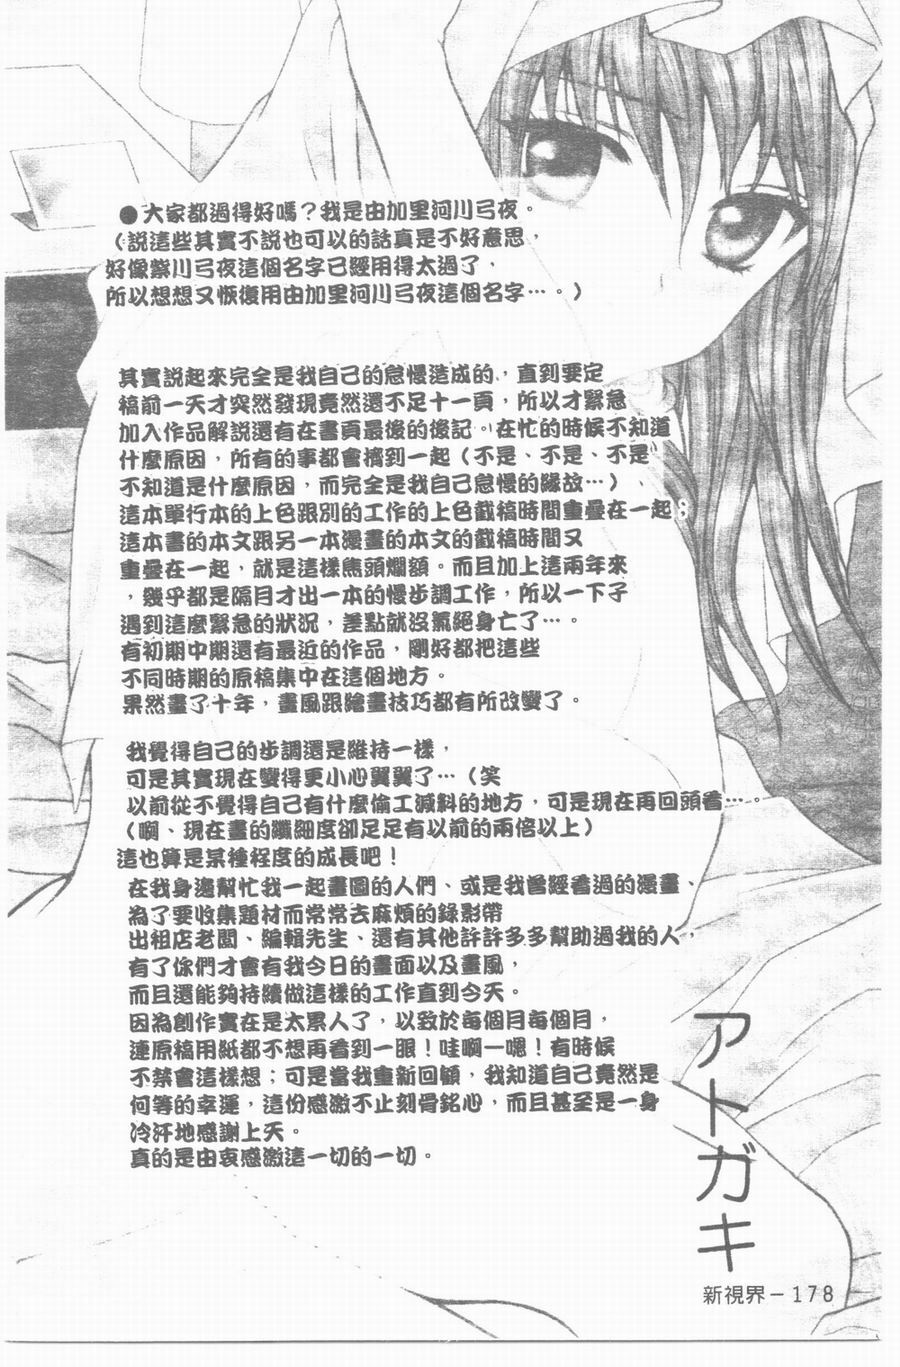 ●大家都過得好嗎？我是由加里河川弓夜。
（説這些其實不說也可以的話真是不好意思，
好像紫川弓夜這個名字已經用得太過了，
所以想想又恢復用由加里河川弓夜這個名字…。）
其實説起來完全是我自己的怠慢造成的，直到要定
稿前一天才突然發現竟然還不足十一頁，所以才緊急
加入作品解説還有在書頁最後的後記。在忙的時候不知道
什麼原因，所有的事都會擠到一起（不是、不是、不是
不知道是什麼原因，而完全是我自己怠慢的緣故…）、
這本單行本的上色跟別的工作的上色截稿時間重疊在一起；
這本書的本文跟另一本漫畫的本文的截稿時間又
重疊在一起，就是這樣焦頭爛額。而且加上這兩年來
，幾乎都是隔月才出一本的慢步調工作，所以一下子
遇到這麼緊急的狀況，差點就沒氣絕身亡了…。
有初期中期還有最近的作品，剛好都把這些
不同時期的原稿集中在這個地方。
果然畫了十年，畫風跟繪畫技巧都有所改變了。
我覺得自己的步調還是維持一樣，
可是其實現在變得更小心翼翼了…（笑
以前從不覺得自己有什麼偷工減料的地方，可是現在再回頭看…。
（啊、現在畫的纖細度卻足足有以前的兩倍以上）
這也算是某種程度的成長吧！
在我身邊幫忙我一起畫圖的人們、或是我曾經看過的漫畫、
為了要收集題材而常常去麻煩的錄影帶
出租店老闆、編輯先生、還有其他許許多多幫助過我的人，
有了你們才會有我今日的畫面以及畫風，
而且還能夠持續做這樣的工作直到今天。
因為創作實在是太累人了，以致於每個月每個月，
連原稿用紙都不想再看到一眼！哇啊—嗯！有時候
不禁會這樣想；可是當我重新回顧，我知道自己竟然是
何等的幸運，這份感激不止刻骨銘心，而且甚至是一身
冷汗地感謝上天。
真的是由衷感激這一切的一切。
アトガキ
新視界－178